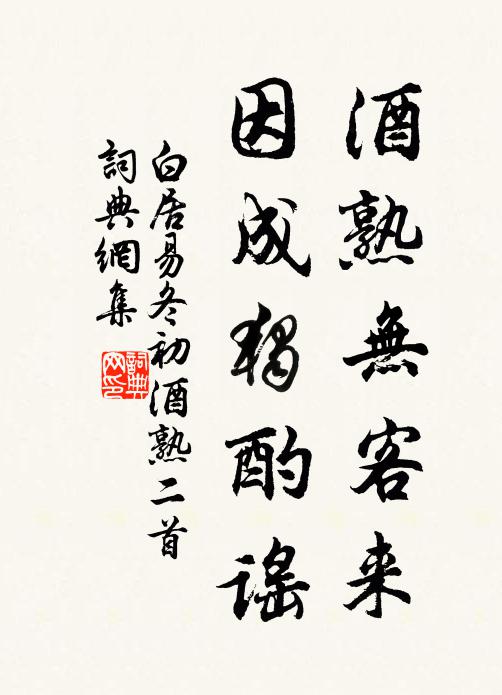 酒熟無客来
因成獨酌謠
白居易冬初酒熟二首
詞典網集
詞典
网印